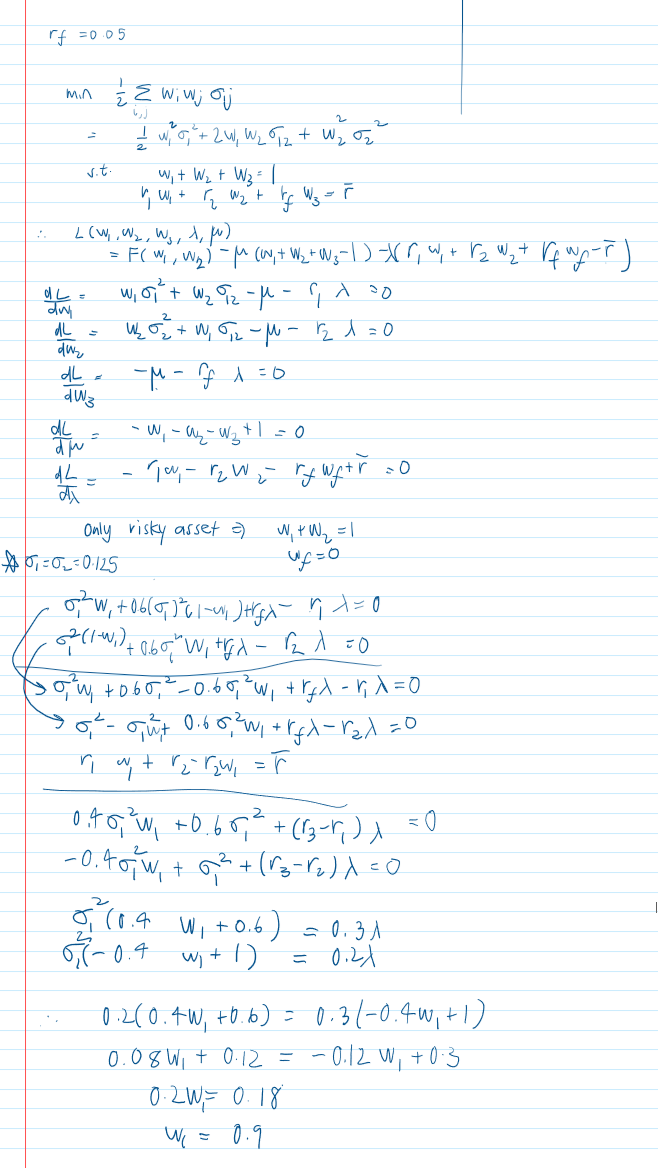 rf = 0.05
min 1/2 Σ_{i,j} wi wj σij
= 1/2 w1²σ1² + 2w1 w2 σ12 + w2² σ2²
s.t. w1 + w2 + w3 = 1
r1 w1 + r2 w2 + rf w3 = r̄
∴ L(w1, w2, w3, λ, μ)
= F(w1, w2) - μ(w1+w2+w3-1) - λ(r1 w1 + r2 w2 + rf wf - r̄)
dL/dw1 = w1σ1² + w2 σ12 - μ - r1 λ = 0
dL/dw2 = w2σ2² + w1 σ12 - μ - r2 λ = 0
dL/dw3 = -μ - rf λ = 0
dL/dμ = -w1 - w2 - w3 + 1 = 0
dL/dλ = - r1w1 - r2 w2 - rf wf + r̄ = 0
Only risky asset ⇒ w1 + w2 = 1
wf = 0
☆ σ1 = σ2 = 0.125
σ1² w1 + 0.6(σ1)²(1-w1) + rfλ - r1 λ = 0
σ1²(1-w1) + 0.6σ1² w1 + rfλ - r2 λ = 0
σ1²w1 + 0.6σ1² - 0.6σ1²w1 + rfλ - r1λ = 0
σ1² - σ1²w1 + 0.6σ1²w1 + rfλ - r2λ = 0
r1 w1 + r2 - r2w1 = r̄
0.4σ1²w1 + 0.6σ1² + (r3-r1)λ = 0
-0.4σ1²w1 + σ1² + (r3-r2)λ = 0
σ1²(0.4 w1 + 0.6) = 0.3λ
σ1²(-0.4 w1 + 1) = 0.2λ
∴ 0.2(0.4w1 + 0.6) = 0.3(-0.4w1 + 1)
0.08w1 + 0.12 = -0.12w1 + 0.3
0.2w1 = 0.18
w1 = 0.9